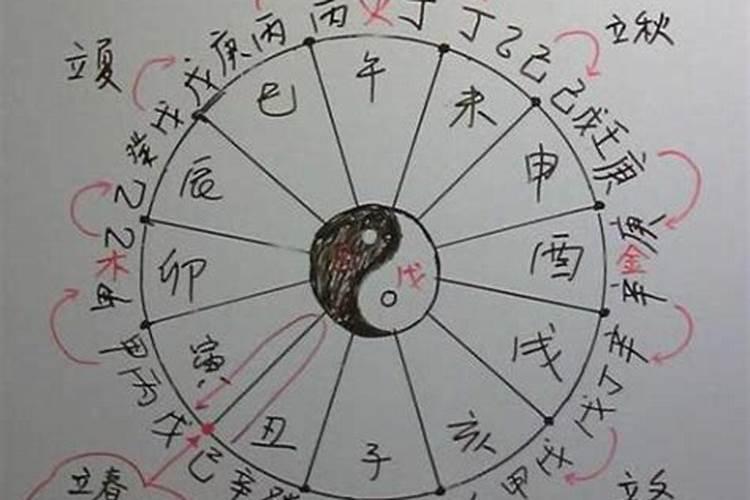 立夏
立秋
丙火丁
戊庚丙丙
丁乙己
己戊壬庚
戊
癸
乙
乙
木
甲
甲丙戊
庚
金
辛
辛
丁
戊
戊
甲
己辛癸
立春
巳
午
未
申
酉
戌
亥
子
丑
寅
卯
辰
戊